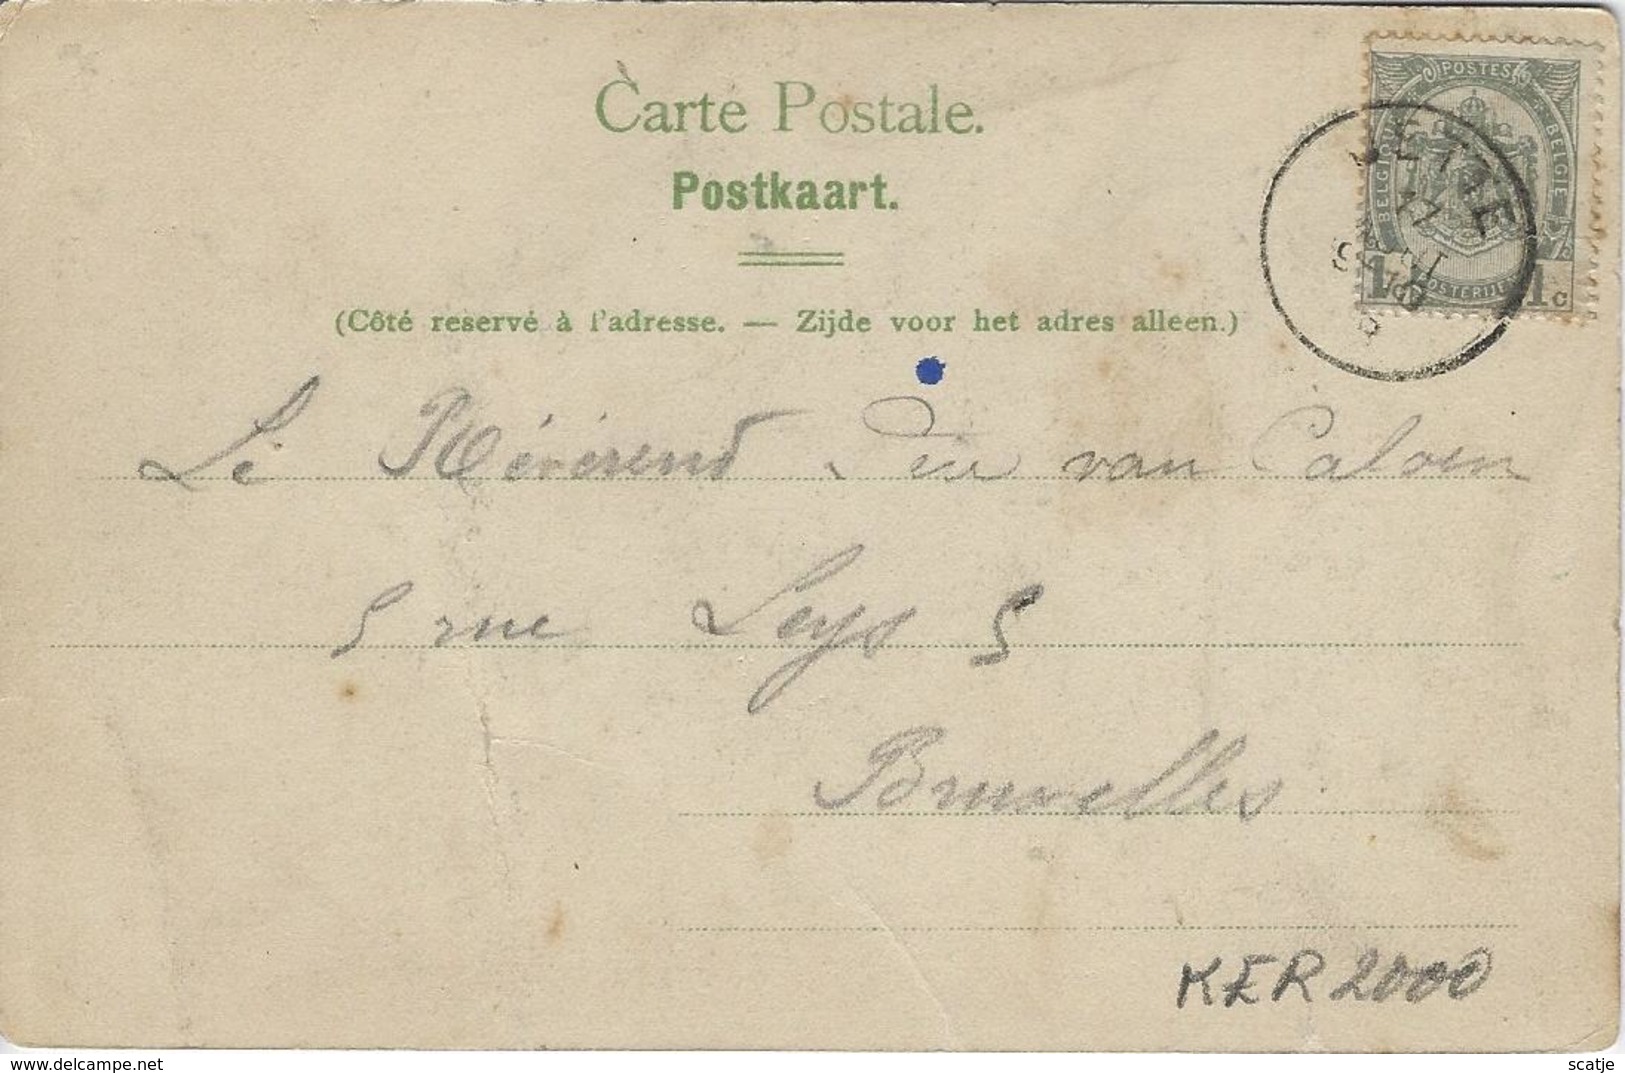 Carte Postale.
Postkaart.
(Côté reservé à l'adresse. — Zijde voor het adres alleen.)
POSTES
BELGIQUE
BELGIE
POSTERIJEN
1 1c
Le Révérend van Caloen
5 rue Leys 5
Bruxelles
KER2000
delcampe.net
scatje